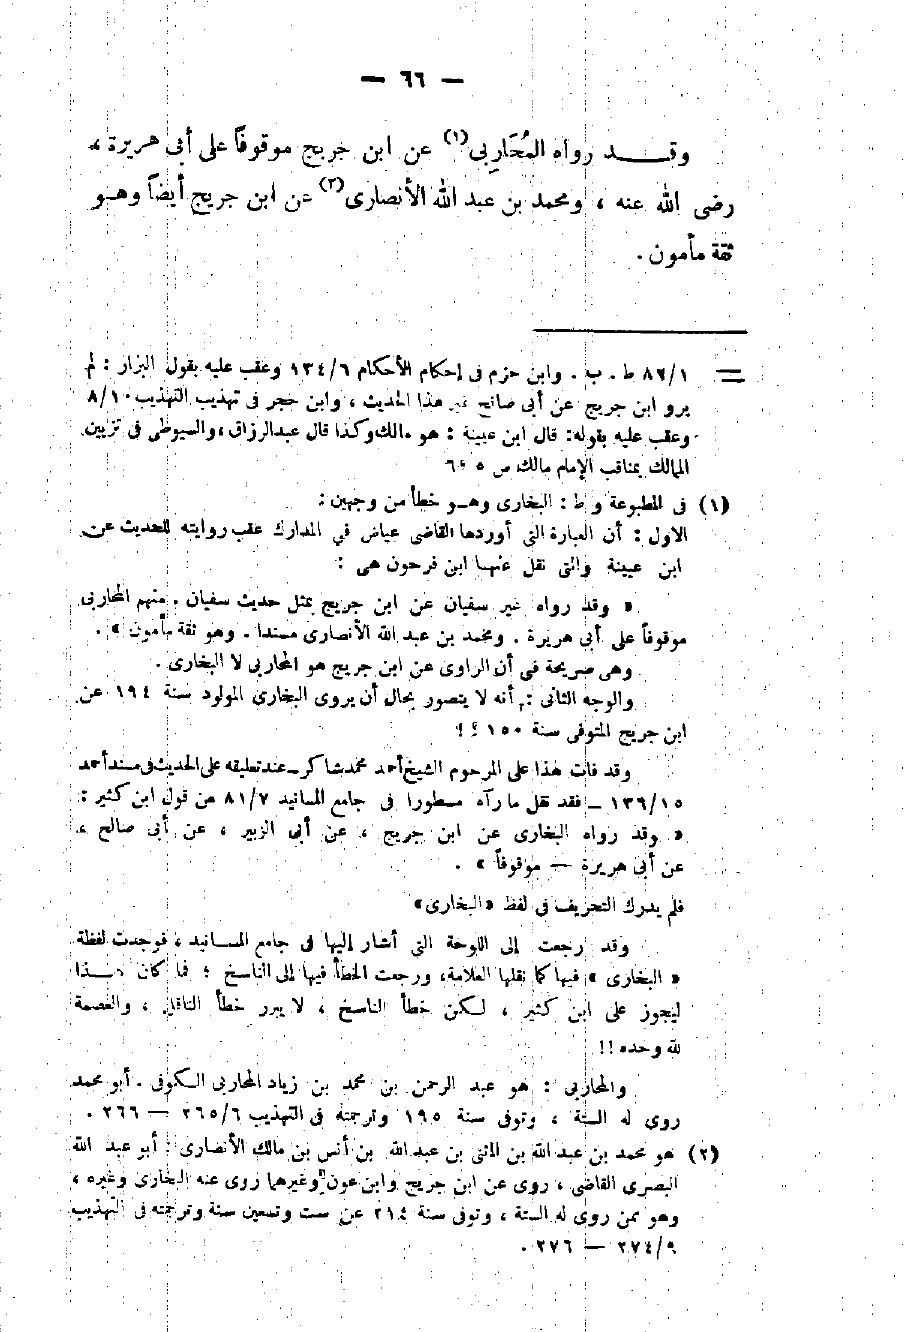 — ٦٦ —
وقــد رواه المُحَارِبى(١) عن ابن جريج موقوفاً على أبى هريرة ،
رضى الله عنه ، ومحمد بن عبد الله الأنصارى(٢) عن ابن جريج أيضاً وهـو
ثقة مأمون .
= ٨٢/١ ط . ب . وابن حزم فى إحكام الأحكام ١٣٤/٦ وعقب عليه بقول البزار : لم
يرو ابن جريج عن أبى صالح غير هذا الحديث ، وابن حجر فى تهذيب التهذيب ٨/١٠
وعقب عليه بقوله: قال ابن عيينة : هو مالك وكذا قال عبدالرزاق، والسيوطى فى تزيين
الممالك بمناقب الإمام مالك، ص
(١) فى المطبوعة و ط : البخارى وهـو خطأ من وجهين :
الاول : أن العبارة التى أوردها القاضى عياض في المدارك عقب روايته للحديث عن
ابن عيينة والتى نقل عنهـا ابن فرحون هى :
« وقد رواه غير سفيان عن ابن جريج بمثل حديث سفيان . منهم المحاربى
موقوفاً على أبى هريرة . ومحمد بن عبد الله الأنصارى مسندا . وهو ثقة مأمون » .
وهى صريحة فى أن الراوى عن ابن جريج هو المحاربى لا البخارى .
والوجه الثانى : أنه لا يتصور بحال أن يروى البخارى المولود سنة ١٩٤ عن
ابن جريج المتوفى سنة ١٥٠ ؟ !
وقد فات هذا على المرحوم الشيخ أحمد محمد شاكر ـ عند تعليقه على الحديث فى مسند أحمد
١٣٦/١٥ ـ فقد نقل ما رآه مسطورا فى جامع المسانيد ٨١/٧ من قول ابن كثير :
« وقد رواه البخارى عن ابن جريج ، عن أبى الزبير ، عن أبى صالح ،
عن أبى هريرة — موقوفاً » .
فلم يدرك التحريف فى لفظ «البخارى»
وقد رجعت إلى اللوحة التى أشار إليها فى جامع المسانيد ، فوجدت لفظة
« البخارى » فيها كما نقلها العلامة، ورجعت الخطأ فيها إلى الناسخ ؛ فما كان هـذا
ليجوز على ابن كثير ، لـكن خطأ الناسخ ، لا يبرر خطأ الناقل ، والعصمة
لله وحده !!
والمحاربى : هو عبد الرحمن بن محمد بن زياد المحاربى الـكوفى . أبو محمد
روى له الستة ، وتوفى سنة ١٩٥ وترجمته فى التهذيب ٢٦٥/٦ — ٢٦٦ .
(٢) هو محمد بن عبد الله بن المثنى بن عبد الله بن أنس بن مالك الأنصارى : أبو عبد الله
البصرى القاضى ، روى عن ابن جريج وابن عون وغيرهما روى عنه البخارى وغيره ،
وهو ممن روى له الستة ، وتوفى سنة ٢١٤ عن ست وتسعين سنة وترجمته فى التهذيب
٢٧٤/٩ — ٢٧٦ .